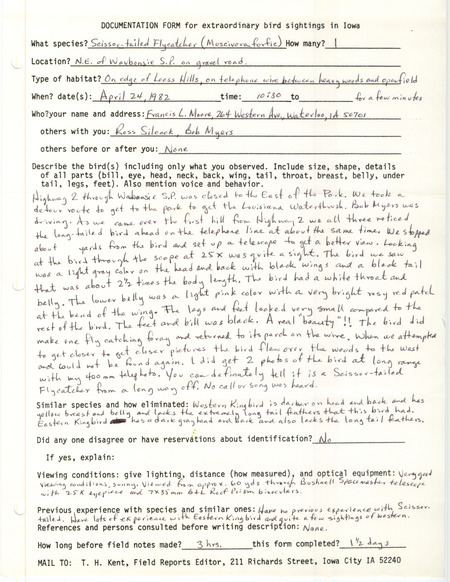 DOCUMENTATION FORM for extraordinary bird sightings in Iowa
What species? Scissor-tailed Flycatcher (Muscivora forfic) How many? 1
Location? N.E. of Waubonsie S.P. on gravel road.
Type of habitat? On edge of Loess Hills, on telephone wire between heavy woods and openfield
When? date(s): April 24, 1982 time: 10:30 to for a few minutes
Who?your name and address: Francis L. Moore, 264 Western Ave., Waterloo, IA 50701
others with you: Ross Silcock, Bob Myers
others before or after you: None
Describe the bird(s) including only what you observed. Include size, shape, details
of all parts (bill, eye, head, neck, back, wing, tail, throat, breast, belly, under
tail, legs, feet). Also mention voice and behavior.
Highway 2 through Waubonsie S.P. was closed to the East of the Park. We took a
detour route to get to the park to get the Louisiana Waterthrush. Bob Myers was
driving. As we came over the first hill from Highway 2 we all three noticed
the long-tailed bird ahead on the telephone line at about the same time. We stopped
about yards from the bird and set up a telescope to get a better view. Looking
at the bird through the scope at 25X was quite a sight. The bird we saw
was a light gray color on the head and back with black wings and a black tail
that was about 2½ times the body length. The bird had a white throat and
belly. The lower belly was a light pink color with a very bright rosy red patch
at the bend of the wing. The legs and feet looked very small compared to the
rest of the bird. The feet and bill was black. A real "beauty"!! The bird did
make one fly catching foray and returned to its parch on the wire. When we attempted
to get closer to get closer pictures the bird flew over the woods to the west
and could not be found again. I did get 2 photos of the bird at long range
with my 400mm telephoto. You can definately tell it is a Scissor-tailed
Flycatcher from a long way off. No call or song was heard.
Similar species and how eliminated: Western Kingbird is darker on head and back and has
yellow breast and belly and lacks the extremely long tail feathers that this bird had.
Eastern Kingbird has a dark gray head and back and also lacks the long tail feathers.
Did any one disagree or have reservations about identification? No
If yes, explain:
Viewing conditions: give lighting, distance (how measured), and optical equipment: Very good
viewing conditions, sunny. Viewed from approx. 60 yds through Bushnell Spacemaster telescope
with 25X eyepiece and 7x35mm 6th Roof Prism binoculars.
Previous experience with species and similar ones: Have no previous experience with Scissor-
tailed. Have lots of experience with Eastern Kingbird and quite a few sightings of Western.
References and persons consulted before writing description: None.
How long before field notes made? 3 hrs. this form completed? 1½ days
MAIL TO: T. H. Kent, Field Reports Editor, 211 Richards Street, Iowa City IA 52240